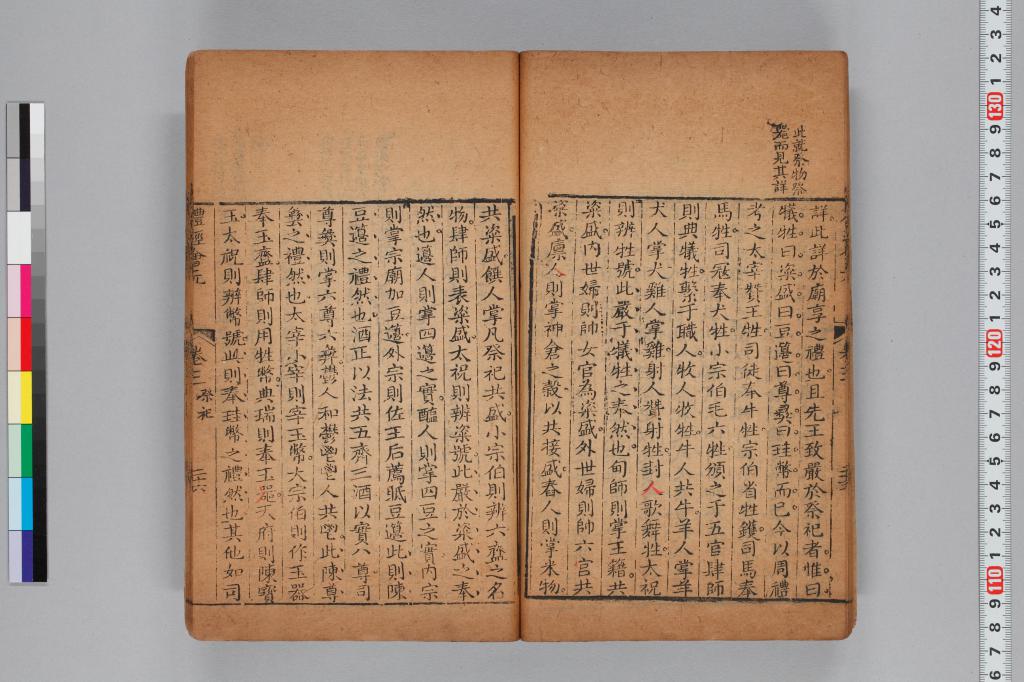 此就祭物祭
器而見其詳
詳此詳於廟享之禮也且先王致嚴於祭祀者惟曰
犧牲曰粢盛曰豆籩曰尊彞曰珪幣而已今以周禮
考之太宰贊王牲司徒奉牛牲宗伯省牲鑊司馬奉
馬牲司冦奉犬牲小宗伯毛六牲頒之于五官肆師
則典犧牲繫于職人牧人牧牲牛人共牛羊人掌羊
犬人掌犬雞人掌雞射人贊射牲封人歌舞牲太祝
則辨牲號此嚴于犧牲之奉然也甸師則掌王籍共
粢盛内世婦則帥女官為粢盛外世婦則帥六宫共
粢盛廪人則掌神倉之穀以共接盛舂人則掌米物
共粢盛饎人掌凡祭祀共盛小宗伯則辨六齍之名
物肆師則表粢盛太祝則辨粢號此嚴於粢盛之奉
然也籩人則掌四籩之實醢人則掌四豆之實内宗
則掌宗廟加豆籩外宗則佐王后薦眡豆籩此則陳
豆籩之禮然也酒正以法共五齊三酒以實八尊司
尊彞則掌六尊六彞鬱人和鬱鬯鬯人共鬯此陳尊
彞之禮然也太宰小宰則宰玉幣大宗伯則作玉器
奉玉齍肆師則用牲幣典瑞則奉玉器天府則陳寳
玉太祝則辨幣號此則奉珪幣之禮然也其他如司
禮經會元
卷三
祭祀
二十六